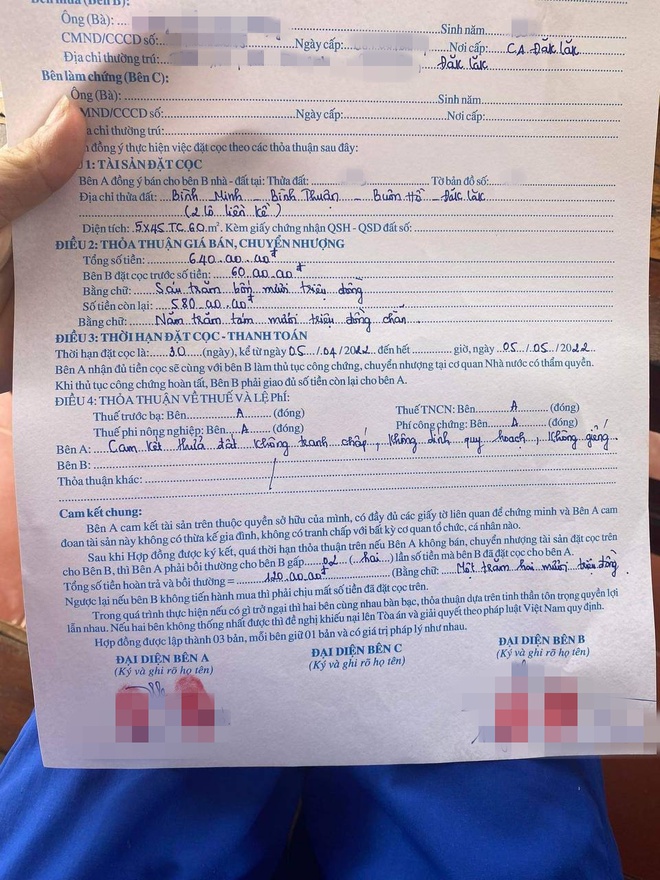 Bên mua (Bên B):
Ông (Bà): Sinh năm
CMND/CCCD số: Ngày cấp: Nơi cấp: CA Đăk Lăk
Địa chỉ thường trú: Đăk Lăk
Bên làm chứng (Bên C):
Ông (Bà): Sinh năm
CMND/CCCD số: Ngày cấp: Nơi cấp:
chỉ thường trú:
đồng ý thực hiện việc đặt cọc theo các thỏa thuận sau đây:
1: TÀI SẢN ĐẶT CỌC
Bên A đồng ý bán cho bên B nhà - đất tại: Thửa đất: Tờ bản đồ số:
Địa chỉ thửa đất: Bình Minh - Bình Thuận - Buôn Hồ - Đăk Lăk
(2 lô liền kề)
Diện tích: 5x45.TC.60 m². Kèm giấy chứng nhận QSH - QSD đất số:
ĐIỀU 2: THỎA THUẬN GIÁ BÁN, CHUYỂN NHƯỢNG
Tổng số tiền: 640.00.00đ
Bên B đặt cọc trước số tiền: 60.00.00đ
Bằng chữ: Sáu trăm bốn mươi triệu đồng
Số tiền còn lại: 580.00.00đ
Bằng chữ: Năm trăm tám mươi triệu đồng chẵn
ĐIỀU 3: THỜI HẠN ĐẶT CỌC - THANH TOÁN
Thời hạn đặt cọc là: 30 (ngày), kể từ ngày 05/04/2022 đến hết giờ, ngày 05/05/2022
Bên A nhận đủ tiền cọc sẽ cùng với bên B làm thủ tục công chứng, chuyển nhượng tại cơ quan Nhà nước có thẩm quyền.
Khi thủ tục công chứng hoàn tất, Bên B phải giao đủ số tiền còn lại cho bên A.
ĐIỀU 4: THỎA THUẬN VỀ THUẾ VÀ LỆ PHÍ:
Thuế trước bạ: Bên A (đóng) Thuế TNCN: Bên A (đóng)
Thuế phi nông nghiệp: Bên A (đóng) Phí công chứng: Bên A (đóng)
Bên A: Cam kết thửa đất không tranh chấp, không dính quy hoạch, không giếng
Bên B:
Thỏa thuận khác:
Cam kết chung:
Bên A cam kết tài sản trên thuộc quyền sở hữu của mình, có đầy đủ các giấy tờ liên quan để chứng minh và Bên A cam
đoan tài sản này không có thừa kế gia đình, không có tranh chấp với bất kỳ cơ quan tổ chức, cá nhân nào.
Sau khi Hợp đồng được ký kết, quá thời hạn thỏa thuận trên nếu Bên A không bán, chuyển nhượng tài sản đặt cọc trên
cho Bên B, thì Bên A phải bồi thường cho bên B gấp 02 (hai) lần số tiền mà bên B đã đặt cọc cho bên A.
Tổng số tiền hoàn trả và bồi thường = 120.00.00đ (Bằng chữ: Một trăm hai mươi triệu đồng
Ngược lại nếu bên B không tiến hành mua thì phải chịu mất số tiền đã đặt cọc trên.
Trong quá trình thực hiện nếu có gì trở ngại thì hai bên cùng nhau bàn bạc, thỏa thuận dựa trên tinh thần tôn trọng quyền lợi
lẫn nhau. Nếu hai bên không thống nhất được thì đề nghị khiếu nại lên Tòa án và giải quyết theo pháp luật Việt Nam quy định.
Hợp đồng được lập thành 03 bản, mỗi bên giữ 01 bản và có giá trị pháp lý như nhau.
ĐẠI DIỆN BÊN A ĐẠI DIỆN BÊN C ĐẠI DIỆN BÊN B
(Ký và ghi rõ họ tên) (Ký và ghi rõ họ tên) (Ký và ghi rõ họ tên)